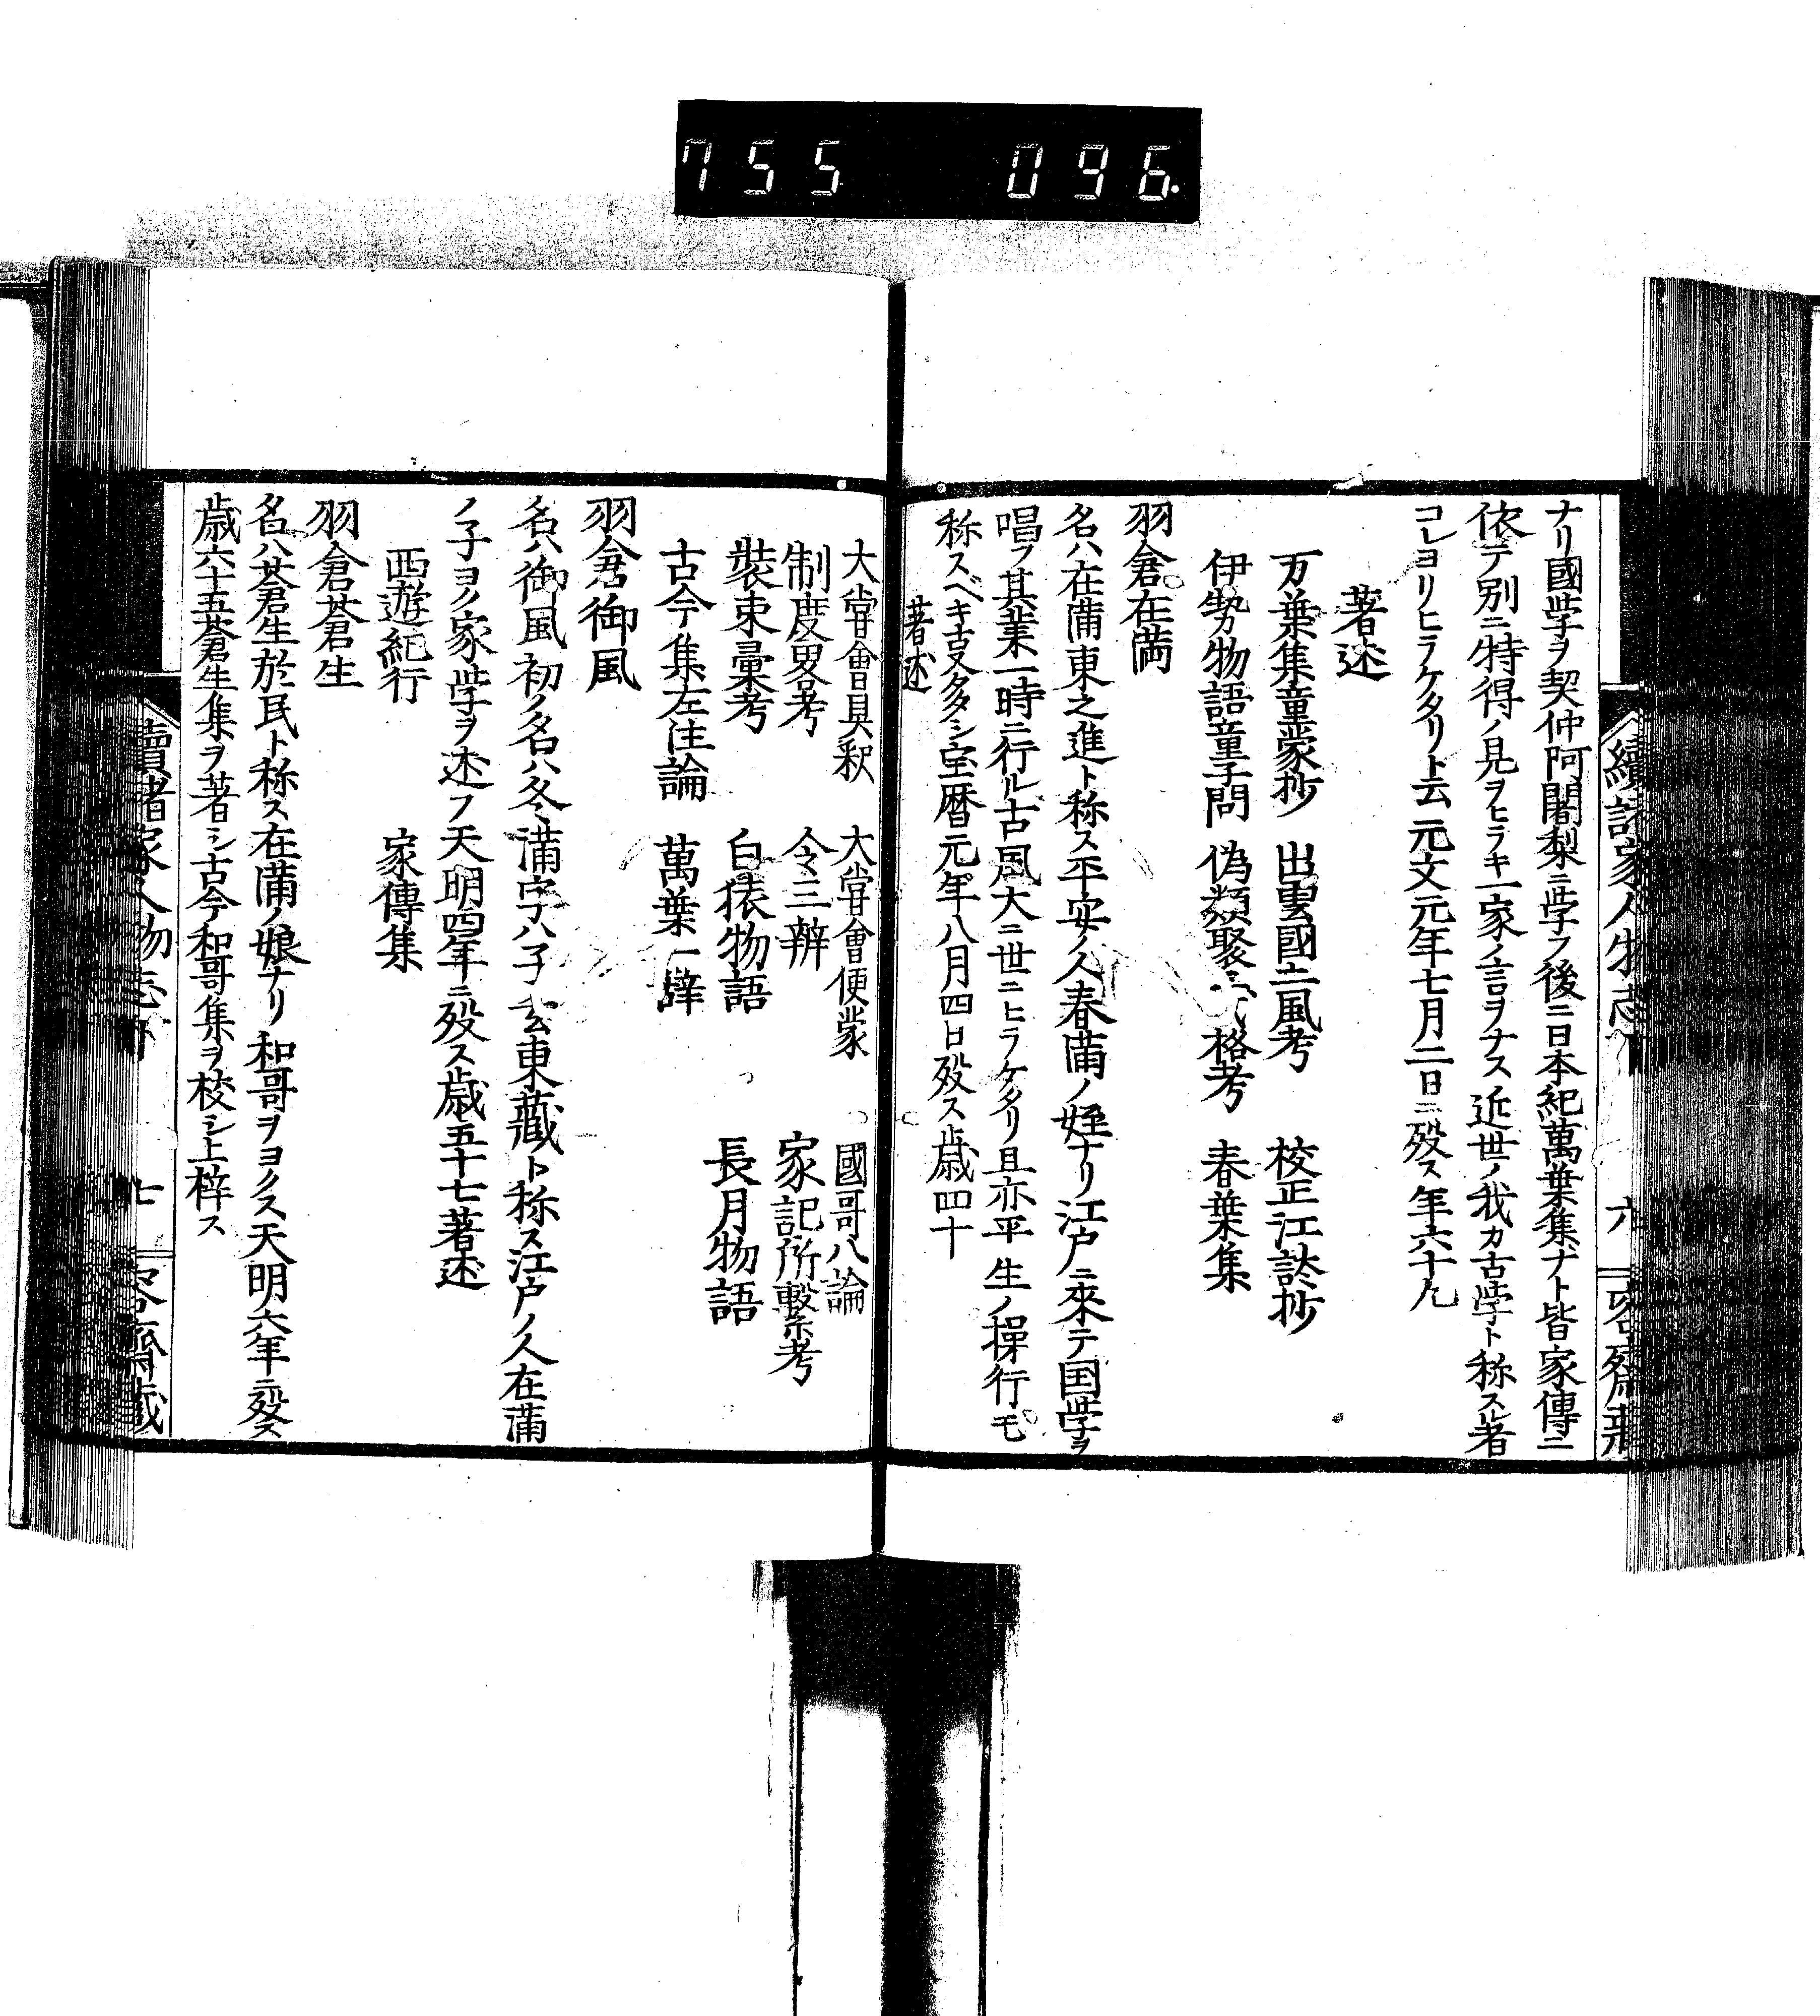 755 096
ナリ國学ヲ契仲阿闍梨ニ学フ後ニ日本紀萬葉集ナト皆家傳ニ
依テ別ニ特得ノ見ヲヒラキ一家ノ言ヲナス近世ノ我カ古学ト称ス者
コレヨリヒラケタリト云元文元年七月二日ニ歿ス年六十九
著述
万葉集童蒙抄 出雲國土風考 校正江談抄
伊勢物語童子問 偽類聚三代格考 春葉集
羽倉在満
名ハ在満東之進ト称ス平安ノ人春満ノ姪ナリ江戸ニ來テ国学ヲ
唱フ其業一時ニ行ル古風大ニ世ニヒラケタリ且亦平生ノ操行モ
称スベキ叓多シ宝暦元年八月四日歿ス歳四十
著述
大嘗會具釈 大嘗會便蒙 國哥八論
制度畧考 令三辨 家記所繋考
裝束彙考 白猿物語 長月物語
古今集左注論 萬葉一辥
羽倉御風
名ハ御風初ノ名ハ冬満字ハ子玄東藏ト称ス江戸ノ人在満
ノ子ヨノ家学ヲ述フ天明四年ニ歿ス歳五十七著述
西遊紀行 家傳集
羽倉蒼生
名ハ蒼生於民ト称ス在満ノ娘ナリ和哥ヲヨクス天明六年ニ歿ス
歳六十五蒼生集ヲ著シ古今和哥集ヲ校シ上梓ス
續諸家人物志 六
續諸家人物志 七